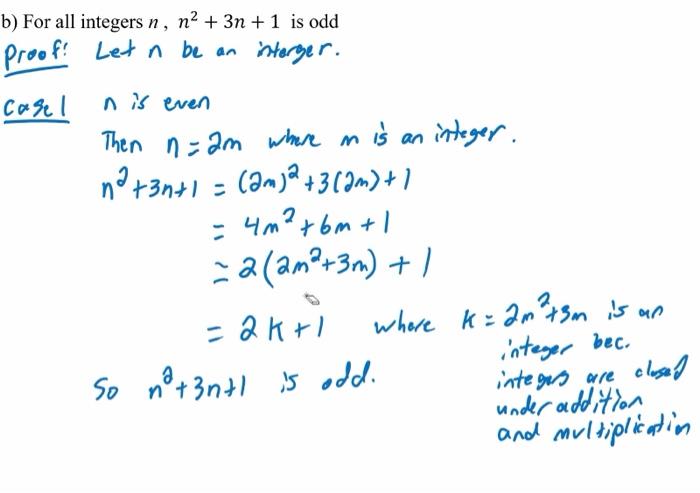 b) For all integers n , n² + 3n + 1 is odd
Proof: Let n be an interger.
Case 1 n is even
Then n = 2m where m is an integer.
n²+3n+1 = (2m)²+3(2m)+1
= 4m²+6m+1
= 2(2m²+3m)+1
= 2k+1 where k = 2m²+3m is an
integer bec.
integers are closed
under addition
and multiplication
So n²+3n+1 is odd.